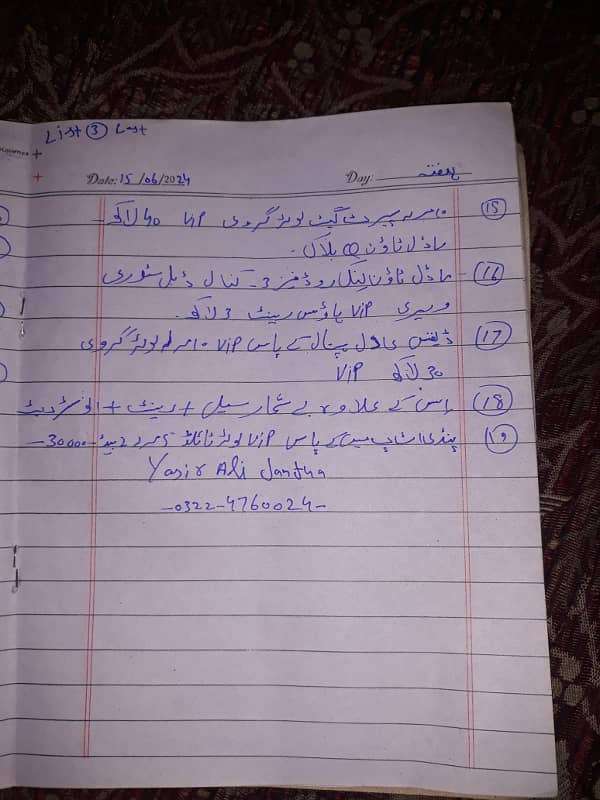 List ③ Last
Date: 15/06/2024 Day: ہفتہ
⑮ ۱۰ مرلہ سپریٹ گیٹ لوئر گروی VIP 40 لاکھ
ماڈل ٹاؤن Q بلاک۔
⑯ ماڈل ٹاؤن لنک روڈ 3 کنال ڈبل سٹوری
ویری VIP ہاؤس رینٹ 3 لاکھ۔
⑰ ڈیفنس عادل ہسپتال کے پاس VIP ۱۰ مرلہ لوئر گروی
30 لاکھ VIP
⑱ اس کے علاوہ بے شمار سیل + رینٹ +
⑲ پنڈی سٹاپ کے پاس VIP لوئر ٹائلڈ 5 مرلہ 2 بیڈ -30000-
Yasir Ali Janjua
-0322-4760024-